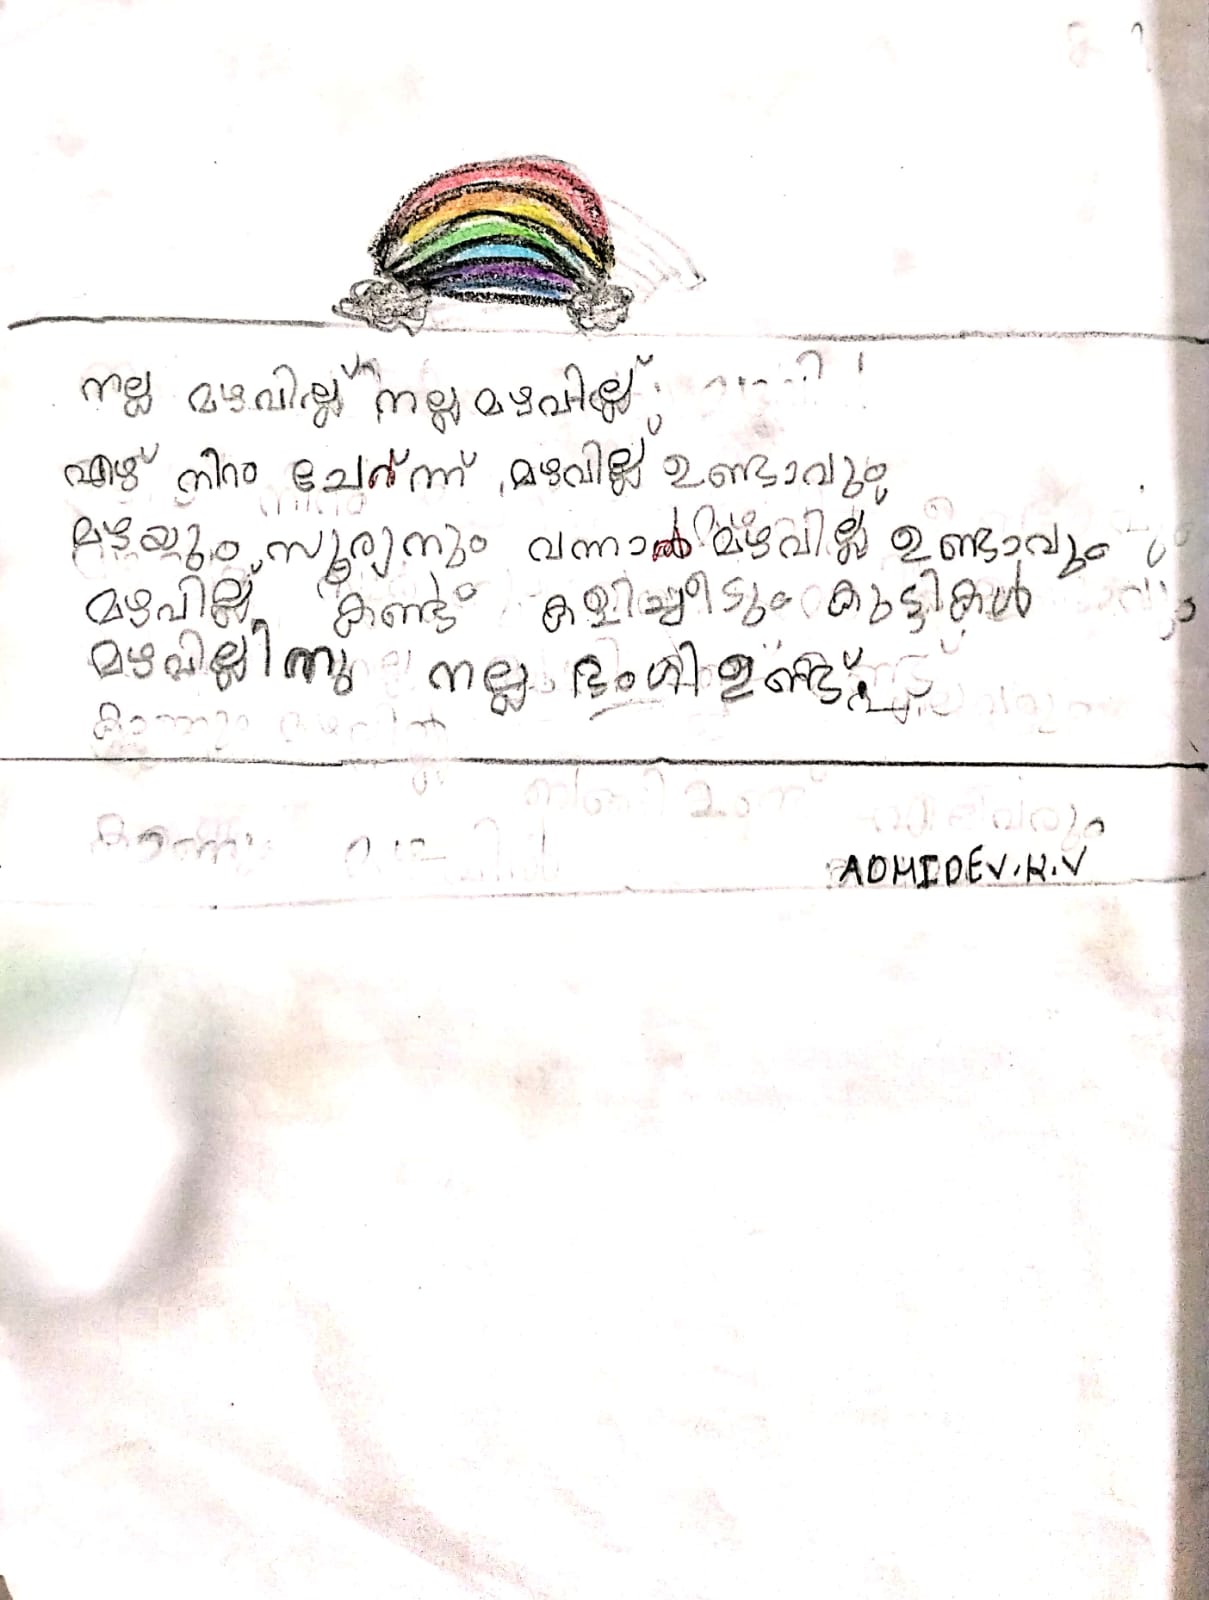 നല്ല മഴവില്ല് നല്ല മഴവില്ല്
ഏഴ് നിറം ചേർന്ന് മഴവില്ല് ഉണ്ടാവും
മഴയും സൂര്യനും വന്നാൽ മഴവില്ല് ഉണ്ടാവും
മഴവില്ല് കണ്ടും കളിച്ചീടും കുട്ടികൾ
മഴവില്ലിനു നല്ല ഭംഗി ഉണ്ട്
ADHIDEV.K.V